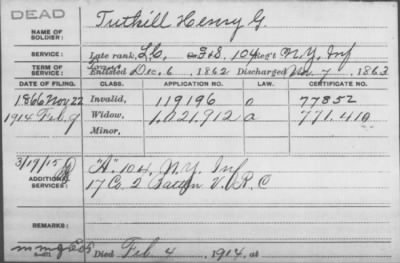 DEAD
NAME OF SOLDIER: Tuthill Henry G.
SERVICE: Late rank, L.C., F&S. 104 Reg't N.Y. Inf
TERM OF SERVICE: Enlisted Dec. 6, 1862 Discharged 7, 1863
DATE OF FILING. CLASS. APPLICATION NO. CERTIFICATE NO.
1866 Nov 22 Invalid, 119196 77852
1914 Feb. 9 Widow, 1,021,912 771.410
Minor,
3/19/15
ADDITIONAL SERVICES: "A" 104, N.Y. Inf
17 Co. 2 V.R.C
REMARKS:
Died Feb 4, 1914, at